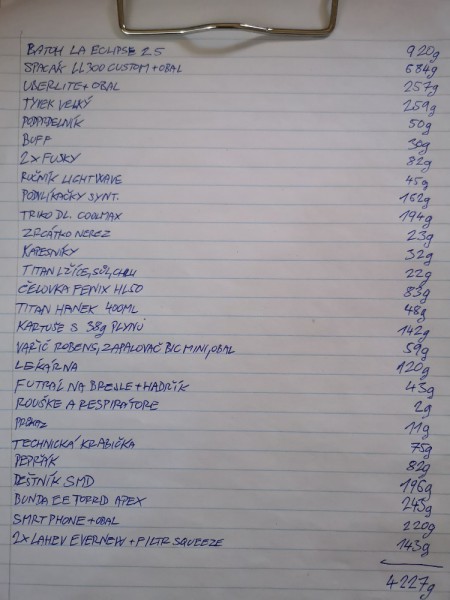 BATOH LA ECLIPSE 25 920g
SPACÁK LL300 CUSTOM+OBAL 684g
UBERLITE+OBAL 257g
TYVEK VELKÝ 259g
PODPRDELNÍK 50g
BUFF 30g
2X FUSKY 82g
RUČNÍK LIGHTWAVE 45g
PODVLÍKAČKY SYNT. 162g
TRIKO DL. COOLMAX 194g
ZRCÁTKO NEREZ 23g
KAPESNÍKY 32g
TITAN LŽÍCE, SŮL, CHILLI 22g
ČELOVKA FENIX HL50 83g
TITAN HRNEK 400ML 48g
KARTUŠE S 38g PLYNU 142g
VAŘIČ ROBENS, ZAPALOVAČ BIC MINI, OBAL 59g
LEKÁRNA 120g
FUTRÁL NA BREJLE+HADŘÍK 43g
ROUŠKE A RESPIRÁTORE 2g
11g
TECHNICKÁ KRABIČKA 75g
PEPŘÁK 82g
DEŠTNÍK SMD 196g
BUNDA 243g
SMRTPHONE+OBAL 220g
2X LAHEV EVERNEW+FILTR SQUEEZE 143g
4227g